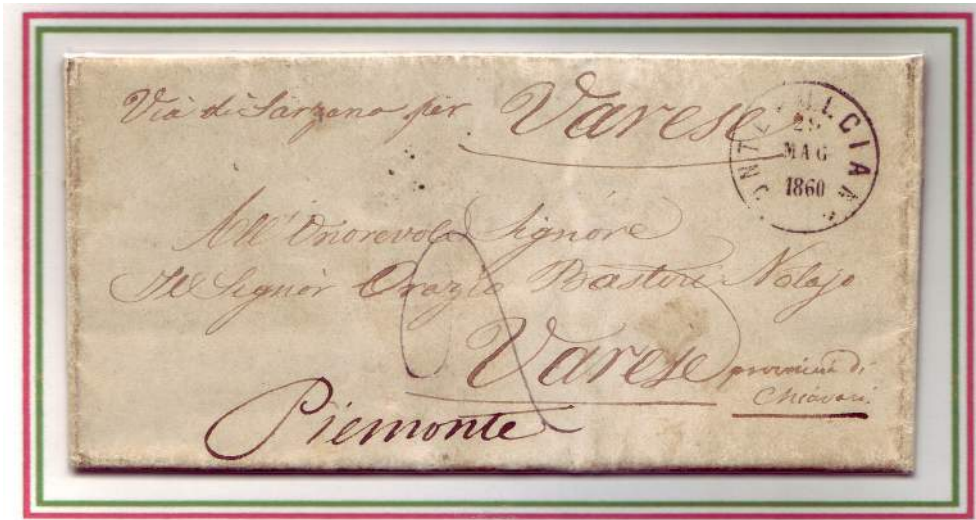 Via di Sarzana per Varese
MONTEPULCIANO
MAG
1860
All' Onorevole Signore
Il Signor Orazio Basteri Notajo
Varese provincia di
Chiavari.
Piemonte